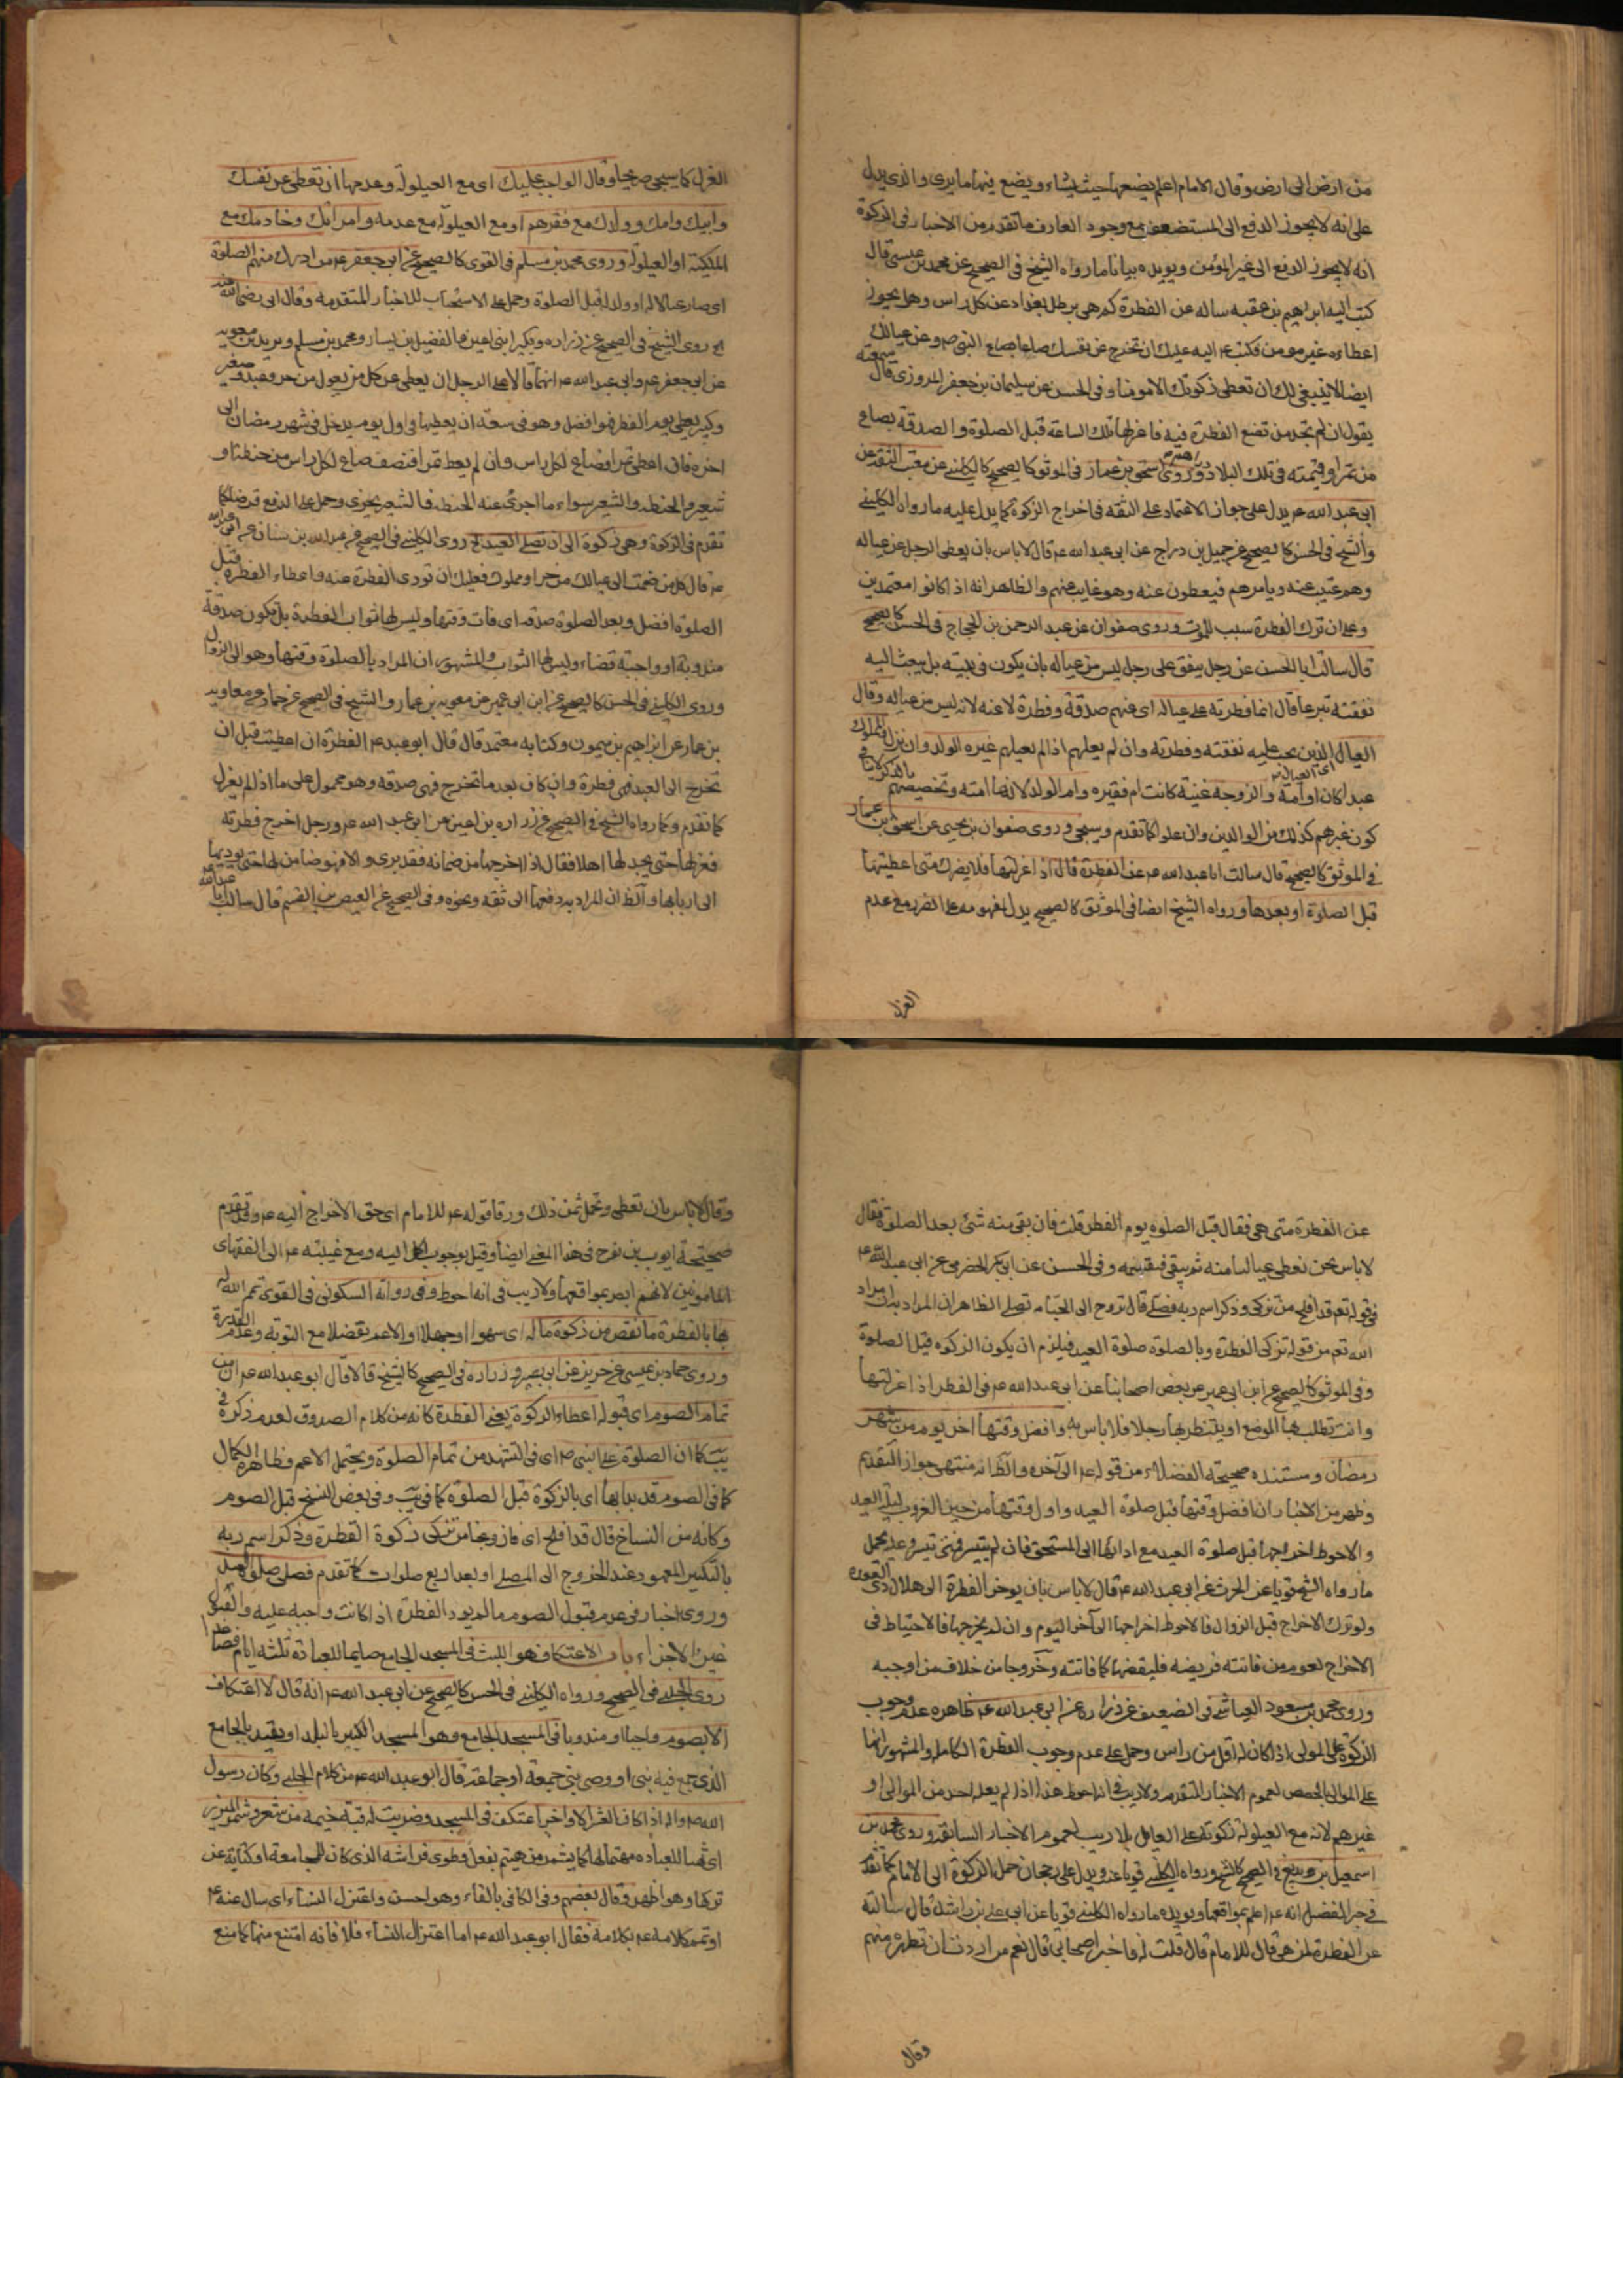 من ارض الى ارض وقال الامام اعلم يضعها حيث يشاء ويضع فيها ما يرى والذى يدل
على انه لا يجوز الدفع الى المستضعف مع وجود العارف ما تقدم من الاخبار فى الزكوة
انه لا يجوز الدفع الى غير المؤمن ويويده بيانا ما رواه الشيخ فى الصحيح عن محمد بن عيسى قال
كتب اليه ابراهيم بن عقبه ساله عن الفطرة كم هى برطل بغداد عن كل راس وهل يجوز
اعطاءه غير مومن فكتب ع اليه عليك ان تخرج عن نفسك صاعا بصاع النبى ص وعن عيالك
ايضا لا ينبغى لك ان تعطى زكوتك الا مومنا وفى الحسن عن سليمان بن جعفر المروزى قال سمعته
يقول ان لم تجد من تضع الفطرة فيه فاعزلها تلك الساعة قبل الصلوة والصدقة بصاع
من تمر او قيمته فى تلك البلاد دراهم وروى اسحق بن عمار فى الموثق كالصحيح كالكلينى عن معتب التقدعن
ابى عبد الله ع يدل على جواز الاعتماد على الثقه فى اخراج الزكوة كما يدل عليه ما رواه الكلينى
والشيخ فى الحسن كالصحيح عن جميل بن دراج عن ابى عبد الله ع قال لا باس بان يعطى الرجل عن عياله
وهم غيب عنه ويامرهم فيعطون عنه وهو غايب عنهم والظاهر انه اذا كانوا معتمدين
وعلى ان ترك الفطرة سبب للموت وروى صفوان عن عبد الرحمن بن الحجاج فى الحسن كالصحيح
قال سالت ابا الحسن عن رجل ينفق على رجل ليس من عياله بان يكون فى بيته بل يبعث اليه
نفقته تبرعا قال انما فطرته على عياله اى عنهم صدقة وفطرة لا عنه لانه ليس من عياله وقال
العيال الذين يجب عليه نفقته وفطرته وان لم يعلهم اذا لم يعيلهم غيره الولد وان نزل المملوك
عبدا كان او امة والزوجه غنية كانت ام فقيره وام الولد لانها امته وتخصيصهم بالذكر لا ينافى
كون غيرهم كذلك من الوالدين وان علوا كما تقدم وسيجى وروى صفوان بن يحيى عن اسحق بن عمار
فى الموثق كالصحيح قال سالت ابا عبد الله ع عن الفطرة قال اذا عزلتها فلا يضرك متى اعطيتها
قبل الصلوة او بعدها ورواه الشيخ ايضا فى الموثق كالصحيح يدل بمفهومه على الضرر مع عدم
العزل
العزل كما سيجى صريحا وقال الواجب عليك اى مع العيلولة وعدمها ان تعطى عن نفسك
وابيك وامك وولدك مع فقرهم او مع العيلولة مع عدمه وامراتك وخادمك مع
الملكية او العيلولة وروى محمد بن مسلم فى القوى كالصحيح عن ابى جعفر ع من ادرك منهم الصلوة
اى صار عيالا له او ولد له قبل الصلوة وحمل على الاستحباب للاخبار المتقدمه وقال ابى رضى الله عنه
الخ روى الشيخ فى الصحيح عن زراره وبكير ابنى اعين والفضيل بن يسار ومحمد بن مسلم وبريد بن معويه
عن ابى جعفر ع وابى عبد الله ع انهما قالا على الرجل ان يعطى عن كل من يعول من حر وعبد وصغير
وكبير يعطى يوم الفطر فهو افضل وهو فى سعة ان يعطيها فى اول يوم يدخل فى شهر رمضان الى
اخره فان اعطى تمرا فصاع لكل راس وان لم يعط تمرا فنصف صاع لكل راس من حنطة او
شعير والحنطه والشعير سواء ما اجزى عنه الحنطه فالشعير يجزى وحمل على الدفع قرضا كما
تقدم فى الزكوة وهى زكوة الى ان تصلى العيد الخ روى الكلينى فى الصحيح عن عبد الله بن سنان عن ابى عبد الله
ع قال كل من ضممت الى عيالك من حر او مملوك فعليك ان تودى الفطرة عنه واعطاء الفطرة قبل
الصلوة افضل وبعد الصلوة صدقه اى فات وقتها وليس لها ثواب الفطرة بل تكون صدقة
مندوبة او واجبة قضاء وليس لها الثواب والمشهور ان المراد بالصلوة وقتها وهو الى الزوال
وروى الكلينى فى الحسن كالصحيح عن ابن ابى عمير عن معويه بن عمار والشيخ فى الصحيح عن حماد عن معاويه
بن عمار عن ابراهيم بن ميمون وكتابه معتمد قال قال ابو عبد الله ع الفطرة ان اعطيت قبل ان
تخرج الى العيد فهى فطرة وان كان بعد ما تخرج فهى صدقه وهو محمول على ما اذا لم يعزل
كما تقدم وكما رواه الشيخ فى الصحيح عن زراره بن اعين عن ابى عبد الله ع رجل اخرج فطرته
فعزلها حتى يجد لها اهلا فقال اذا اخرجها من ضمانه فقد برى والا فهو ضامن لها حتى يوديها
الى اربابها والظ ان المراد به دفعها الى ثقه ونحوه وفى الصحيح عن العيص بن القسم قال سالت ابا عبد الله
عن الفطرة متى هى فقال قبل الصلوه يوم الفطر قلت فان بقى منه شئ بعد الصلوة فقال
لا باس نحن نعطى عيالنا منه ثم يبقى فنقسمه وفى الحسن عن ابى بكر الحضرمى عن ابى عبد الله ع
فى قوله تع قد افلح من تزكى وذكر اسم ربه فصلى قال تروح الى الجبانه تصلى الظاهر ان المراد بيان مراد
الله تع من قوله تزكى الفطرة وبالصلوة صلوة العيد فيلزم ان يكون الزكوه قبل الصلوة
وفى الموثق كالصحيح عن ابن ابى عمير عن بعض اصحابنا عن ابى عبد الله ع فى الفطر اذا عزلتها
وانت تطلب بها الموضع او ينتظر بها رجلا فلا باس به وافضل وقتها اخر يوم من شهر
رمضان ومستنده صحيحة الفضلاء من قوله ع الى آخره والظ انه منتهى جواز التقديم
وظهر من الاخبار ان افضل وقتها قبل صلوة العيد واول وقتها من حين الغروب ليلة العيد
والاحوط اخراجها قبل صلوة العيد مع ادائها الى المستحق فان لم يتيسر فمتى تيسر وعليه يحمل
ما رواه الشيخ قويا عن الحرث عن ابى عبد الله ع قال لا باس بان يوخر الفطرة الى هلال ذى القعده
ولو ترك الاخراج قبل الزوال فالاحوط اخراجها الى آخر اليوم وان لم يخرجها فالاحتياط فى
الاخراج لعموم من فاتته فريضه فليقضها كما فاتته وخروجا من خلاف من اوجبه
وروى محمد بن مسعود العياشى فى الضعيف عن زراره عن ابى عبد الله ع ظاهره عدم وجوب
الزكوة على المولى اذا كان له اقل من راس وحمل على عدم وجوب الفطرة الكاملة والمشهور انها
على الموالى بالحصص لعموم الاخبار المتقدمه ولا ريب فى انه احوط هذا اذا لم يعله احد من الموالى او
غيرهم لانه مع العيلولة زكوته على العايل بلا ريب لعموم الاخبار السابقه وروى محمد بن
اسمعيل بن بزيع فى الصحيح كالشيخ ورواه الكلينى قويا عنه ويدل على رجحان حمل الزكوة الى الامام كما تقدم
فى خبر الفضيل انه ع اعلم بمواقعها ويويده ما رواه الكلينى قويا عن ابى على بن راشد قال سالته
عن الفطرة لمن هى قال للامام قال قلت له فاخبر اصحابى قال نعم من اردت ان تطهره منهم
وقال
وقال لا باس بان تعطى وتحمل ثمن ذلك ورقا قوله ع للامام اى حق الاخراج اليه ع وقد تقدم
صحيحة ايوب بن نوح فى هذا المعنى ايضا وقيل بوجوب الحمل اليه ومع غيبته ع الى الفقهاء
المامونين لانهم ابصر بمواقعها ولا ريب فى انه احوط وفى رواية السكونى فى القوى تمم الله له
بها بالفطرة ما نقص من زكوة ماله اى سهوا او جهلا او الاعم تفضلا مع التوبه وعدم القدرة
وروى حماد بن عيسى عن حريز عن ابى بصير وزراره فى الصحيح كالشيخ قالا قال ابو عبد الله ع ان من
تمام الصوم اى قبوله اعطاء الزكوة يعنى الفطرة كانه من كلام الصدوق لعدم ذكره فى
يب كما ان الصلوة على النبى ص اى فى التشهد من تمام الصلوة ويحتمل الاعم وظاهره الكمال
كما فى الصوم قد بدا بها اى بالزكوة قبل الصلوة كما فى يب وفى بعض النسخ قبل الصوم
وكانه من النساخ قال قد افلح اى فاز ونجا من تزكى زكوة الفطرة وذكر اسم ربه
بالتكبير المعهود عند الخروج الى المصلى او بعد اربع صلوات كما تقدم فصلى صلوة العيد
وروى اخبار فى عدم قبول الصوم ما لم يود الفطرة اذا كانت واجبه عليه والقبول
غير الاجزاء باب الاعتكاف هو اللبث فى المسجد الجامع صايما للعبادة ثلثه ايام فصاعدا
روى الحلبى فى الصحيح ورواه الكلينى فى الحسن كالصحيح عن ابى عبد الله ع انه قال لا اعتكاف
الا بصوم واجبا او مندوبا فى المسجد الجامع وهو المسجد الكبير بالبلد او يقيد بالجامع
الذى جمع فيه نبى او وصى نبى جمعة او جماعة قال ابو عبد الله ع من كلام الحلبى وكان رسول
الله ص واله اذا كان العشر الاواخر اعتكف فى المسجد وضربت له قبة خيمه من شعر وشمر الميزر
اى تهيا للعباده مهتما لها كما يشمر من هتم بفعل وطوى فراشه الذى كان للمجامعة او كناية عن
تركها وهو اظهر وقال بعضهم وفى الكافى بالفاء وهو احسن واعتزل النساء اى سال عنه ع
او تمم كلامه ع بكلامه فقال ابو عبد الله ع اما اعتزال النساء فلا فانه امتنع منها كما منع